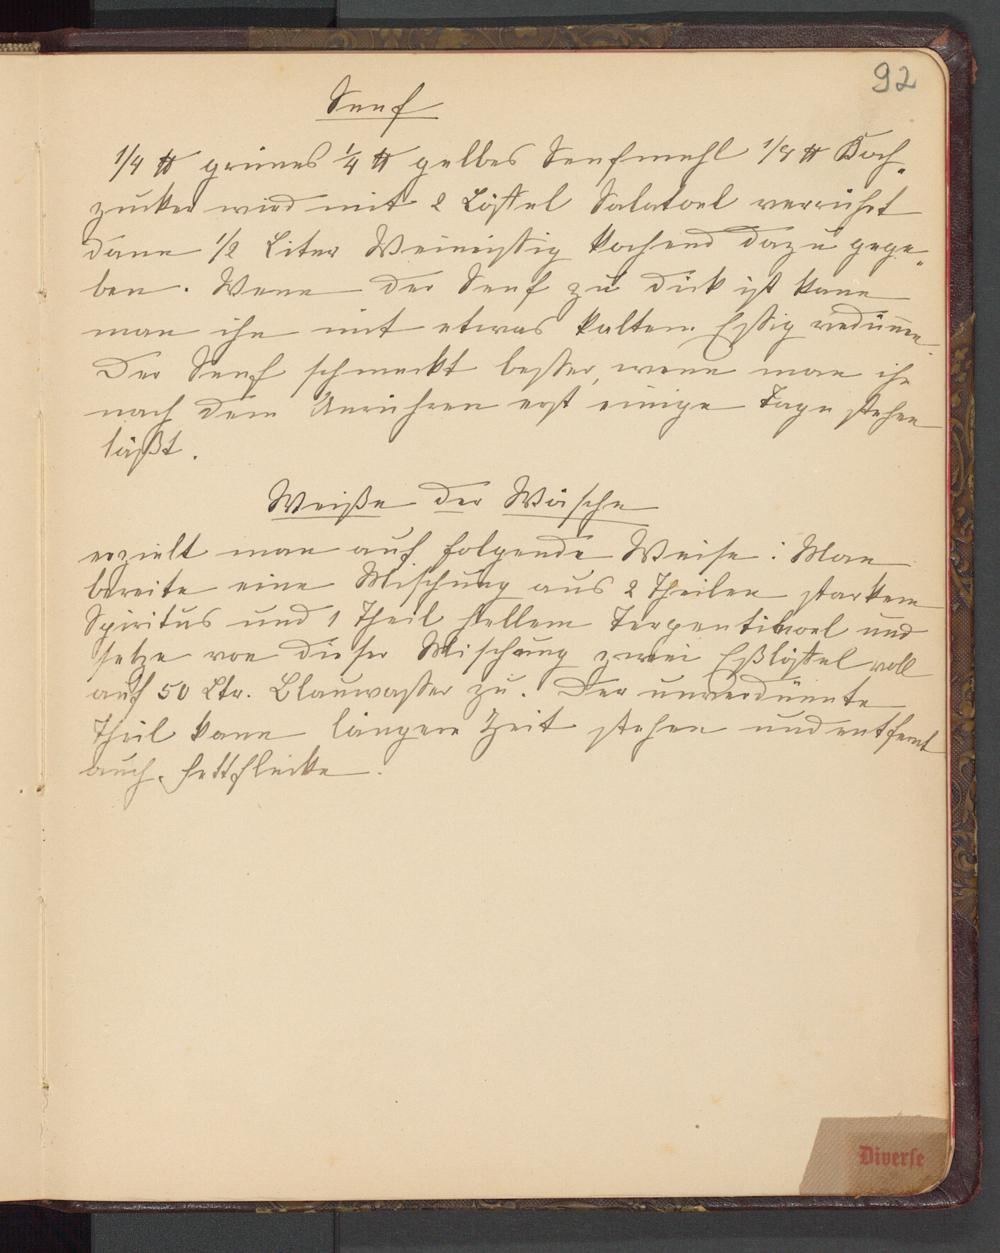 92
Senf
1/4 ℔ grünes 1/4 ℔ gelbes Senfmehl 1/8 ℔ Koch-
zucker wird mit 2 Löffel Salatoel verrührt
dann 1/2 Liter Weinessig kochend dazu gege-
ben. Wenn der Senf zu dick ist kann
man ihn mit etwas kaltem Essig verdünnen.
Der Senf schmeckt besser, wenn man ihn
nach dem Anrühren erst einige Tage stehen
läßt.
Weiße der Wäsche
erzielt man auf folgende Weise: Man
bereite eine Mischung aus 2 Theilen starkem
Spiritus und 1 Theil hellem Terpentinoel und
setze von dieser Mischung zwei Eßlöffel voll
auf 50 Ltr. Blauwasser zu. Der unverdünnte
Theil kann längere Zeit stehen und entfernt
auch Fettflecke.
Diverse